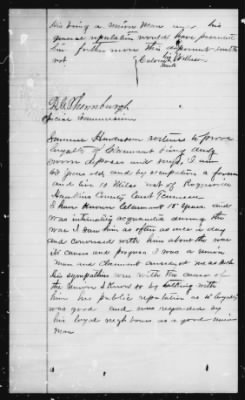 his being a Union Man his
general reputation would have prevented
him further more this deponent saith
not
his
Mark
Special Commissioner
Henderson received to prove
loyalty of Claimant being duly
sworn deposes and says, I am
60 years old and by occupation a farmer
and live 10 Miles east of Rogersville
Hawkins County East Tennessee
I have known Claimant 15 years and
was intimately acquainted during the
war I saw him as often as once a day
and conversed with him about the war
its causes and progress I was a union
man and Claimant
his sympathies were with the cause of
the Union I know so by talking with
him his public reputation as to loyalty
was good and was regarded by
his loyal neighbours as a good union
man